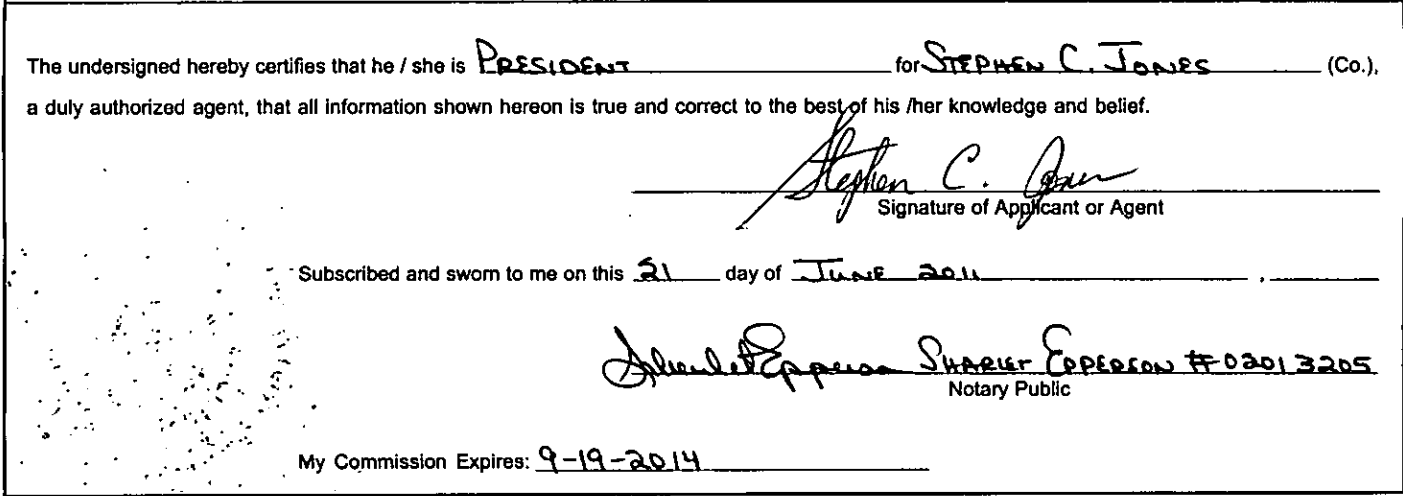 The undersigned hereby certifies that he / she is PRESIDENT for STEPHEN C. JONES (Co.),
a duly authorized agent, that all information shown hereon is true and correct to the best of his /her knowledge and belief.
Stephen C. Jones
Signature of Applicant or Agent
Subscribed and sworn to me on this 21 day of JUNE 2011 , 
Sharlet Epperson SHARLET EPPERSON #02013205
Notary Public
My Commission Expires: 9-19-2014